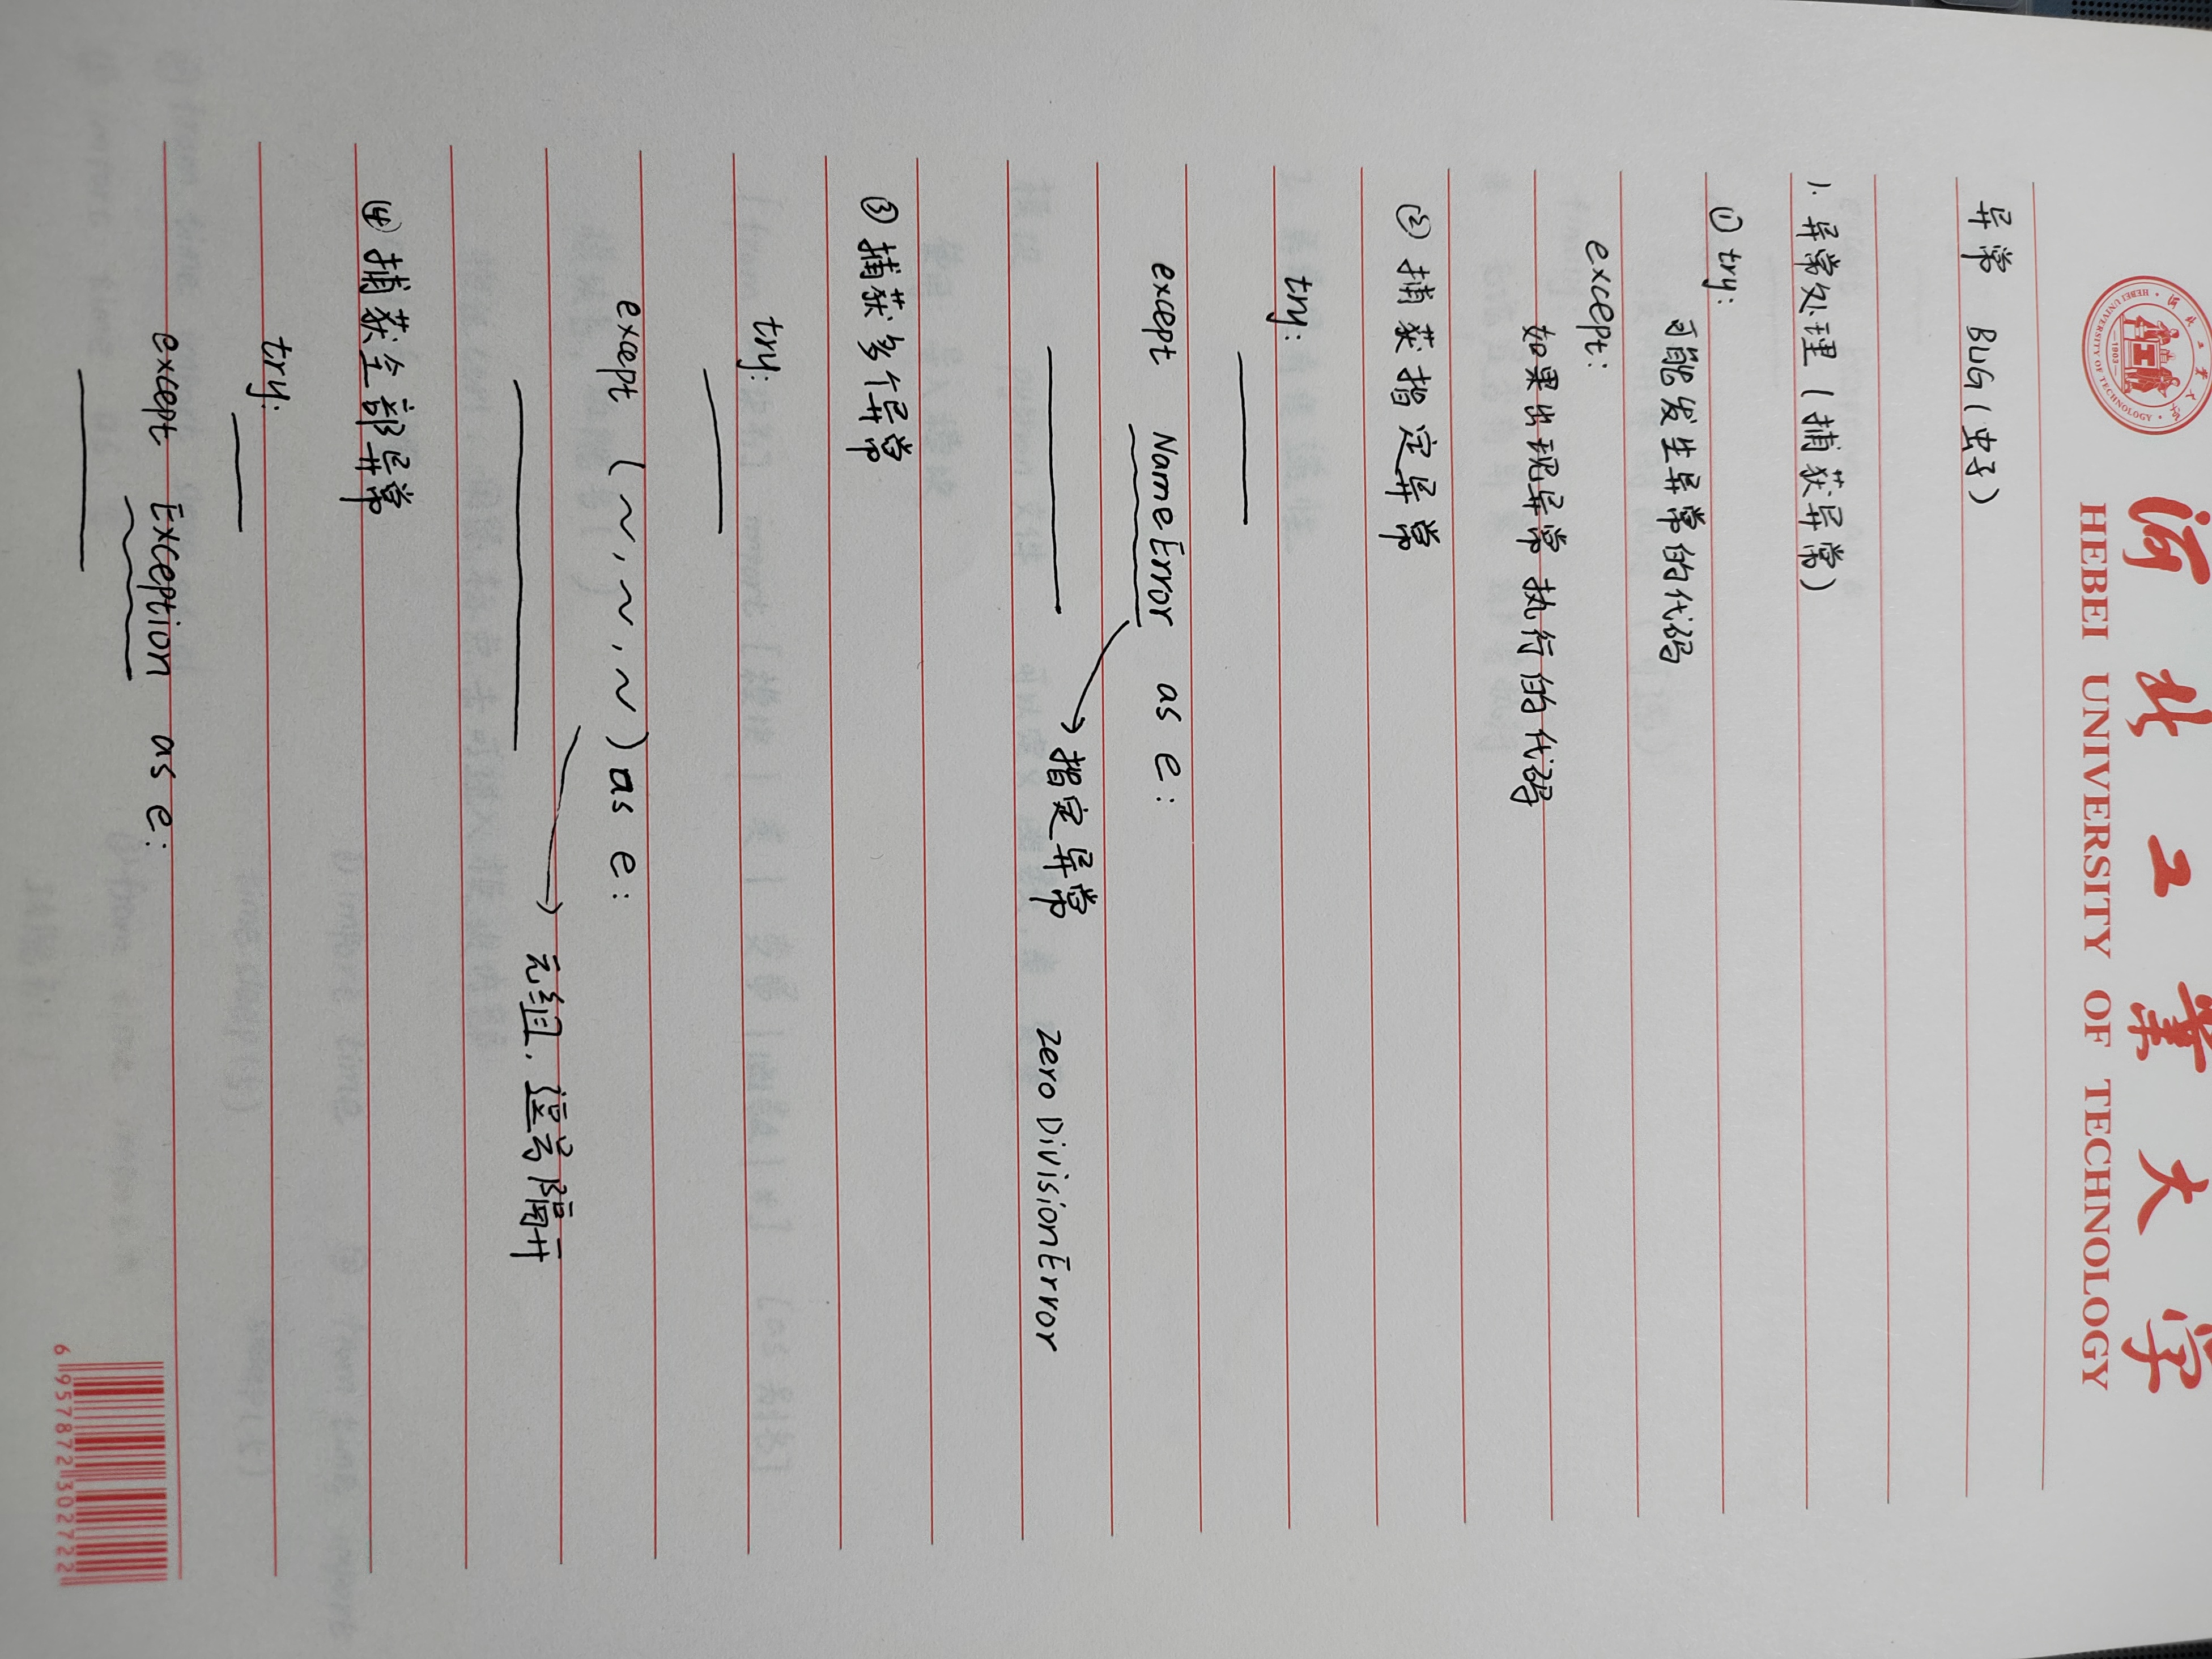 河北工業大学
HEBEI UNIVERSITY OF TECHNOLOGY
河北工業大学
HEBEI UNIVERSITY OF TECHNOLOGY
1903
异常 BUG(虫子)
1. 异常处理(捕获异常)
① try:
可能发生异常的代码
except:
如果出现异常 执行的代码
② 捕获指定异常
try:
except NameError as e:
指定异常 zero DivisionError
③ 捕获多个异常
try:
except (~,~,~) as e:
元组,逗号隔开
④ 捕获全部异常
try:
except Exception as e:
6 957872 302722